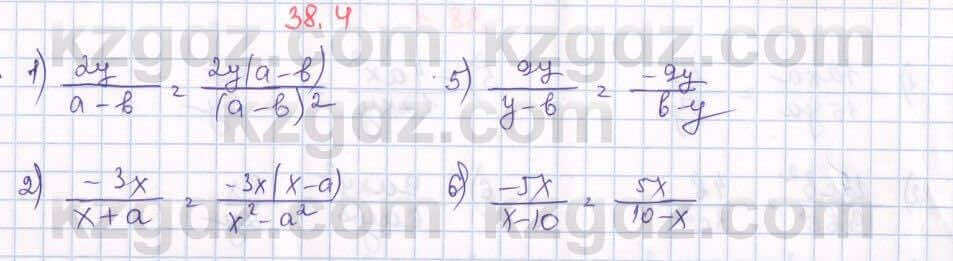 38.4
1) 2y/(a-b) = 2y(a-b)/(a-b)²
5) 9y/(y-b) = -9y/(b-y)
2) -3x/(x+a) = -3x(x-a)/(x²-a²)
6) -5x/(x-10) = 5x/(10-x)
kzgdz.com
kzgdz.com
kzgdz.com
kzgdz.com
kzgdz.com
kzgdz.com